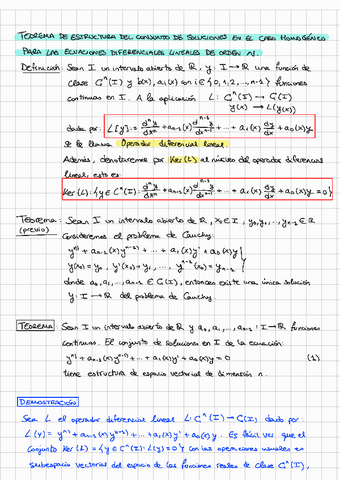 TEOREMA DE ESTRUCTURA DEL CONJUNTO DE SOLUCIONES EN EL CASO HOMOGÉNEO
PARA LAS ECUACIONES DIFERENCIALES LINEALES DE ORDEN N.
Definición: Sean I un intervalo abierto de ℝ, y: I → ℝ una función de
clase Cⁿ(I) y b(x), aᵢ(x) con i ∈ {0,1,2,...,n-1} funciones
continuas en I. A la aplicación L: Cⁿ(I) → C(I)
y(x) → L(y(x))
dada por: L[y] := dⁿy/dxⁿ + aₙ₋₁(x) dⁿ⁻¹y/dxⁿ⁻¹ + ... + a₁(x) dy/dx + a₀(x)y
se le llama Operador diferencial lineal.
Además, denotaremos por Ker(L) al núcleo del operador diferencial
lineal, esto es:
Ker(L) := {y ∈ Cⁿ(I): dⁿy/dxⁿ + aₙ₋₁(x) dⁿ⁻¹y/dxⁿ⁻¹ + ... + a₁(x) dy/dx + a₀(x)y = 0}
Teorema: Sean I un intervalo abierto de ℝ, x₀ ∈ I, y₀, y₁, ..., yₙ₋₁ ∈ ℝ
(previo) Consideremos el problema de Cauchy:
yⁿ⁾ + aₙ₋₁(x)yⁿ⁻¹⁾ + ... + a₁(x)y' + a₀(x)y
y(x₀) = y₀, y'(x₀) = y₁, ..., yⁿ⁻¹⁾(x₀) = yₙ₋₁
donde a₀, a₁, ..., aₙ₋₁ ∈ C(I), entonces existe una única solución
y: I → ℝ del problema de Cauchy.
TEOREMA: Sean I un intervalo abierto de ℝ y a₀, a₁, ..., aₙ₋₁: I → ℝ funciones
continuas. El conjunto de soluciones en I de la ecuación:
yⁿ⁾ + aₙ₋₁(x)yⁿ⁻¹⁾ + ... + a₁(x)y' + a₀(x)y = 0 (1)
tiene estructura de espacio vectorial de dimensión n.
DEMOSTRACIÓN
Sea L el operador diferencial lineal L: Cⁿ(I) → C(I) dado por:
L(y) = yⁿ⁾ + aₙ₋₁(x)yⁿ⁻¹⁾ + ... + a₁(x)y' + a₀(x)y. Es fácil ver que el
conjunto Ker(L) = {y ∈ Cⁿ(I): L(y) = 0} con las operaciones usuales es
subespacio vectorial del espacio de las funciones reales de clase Cⁿ(I),